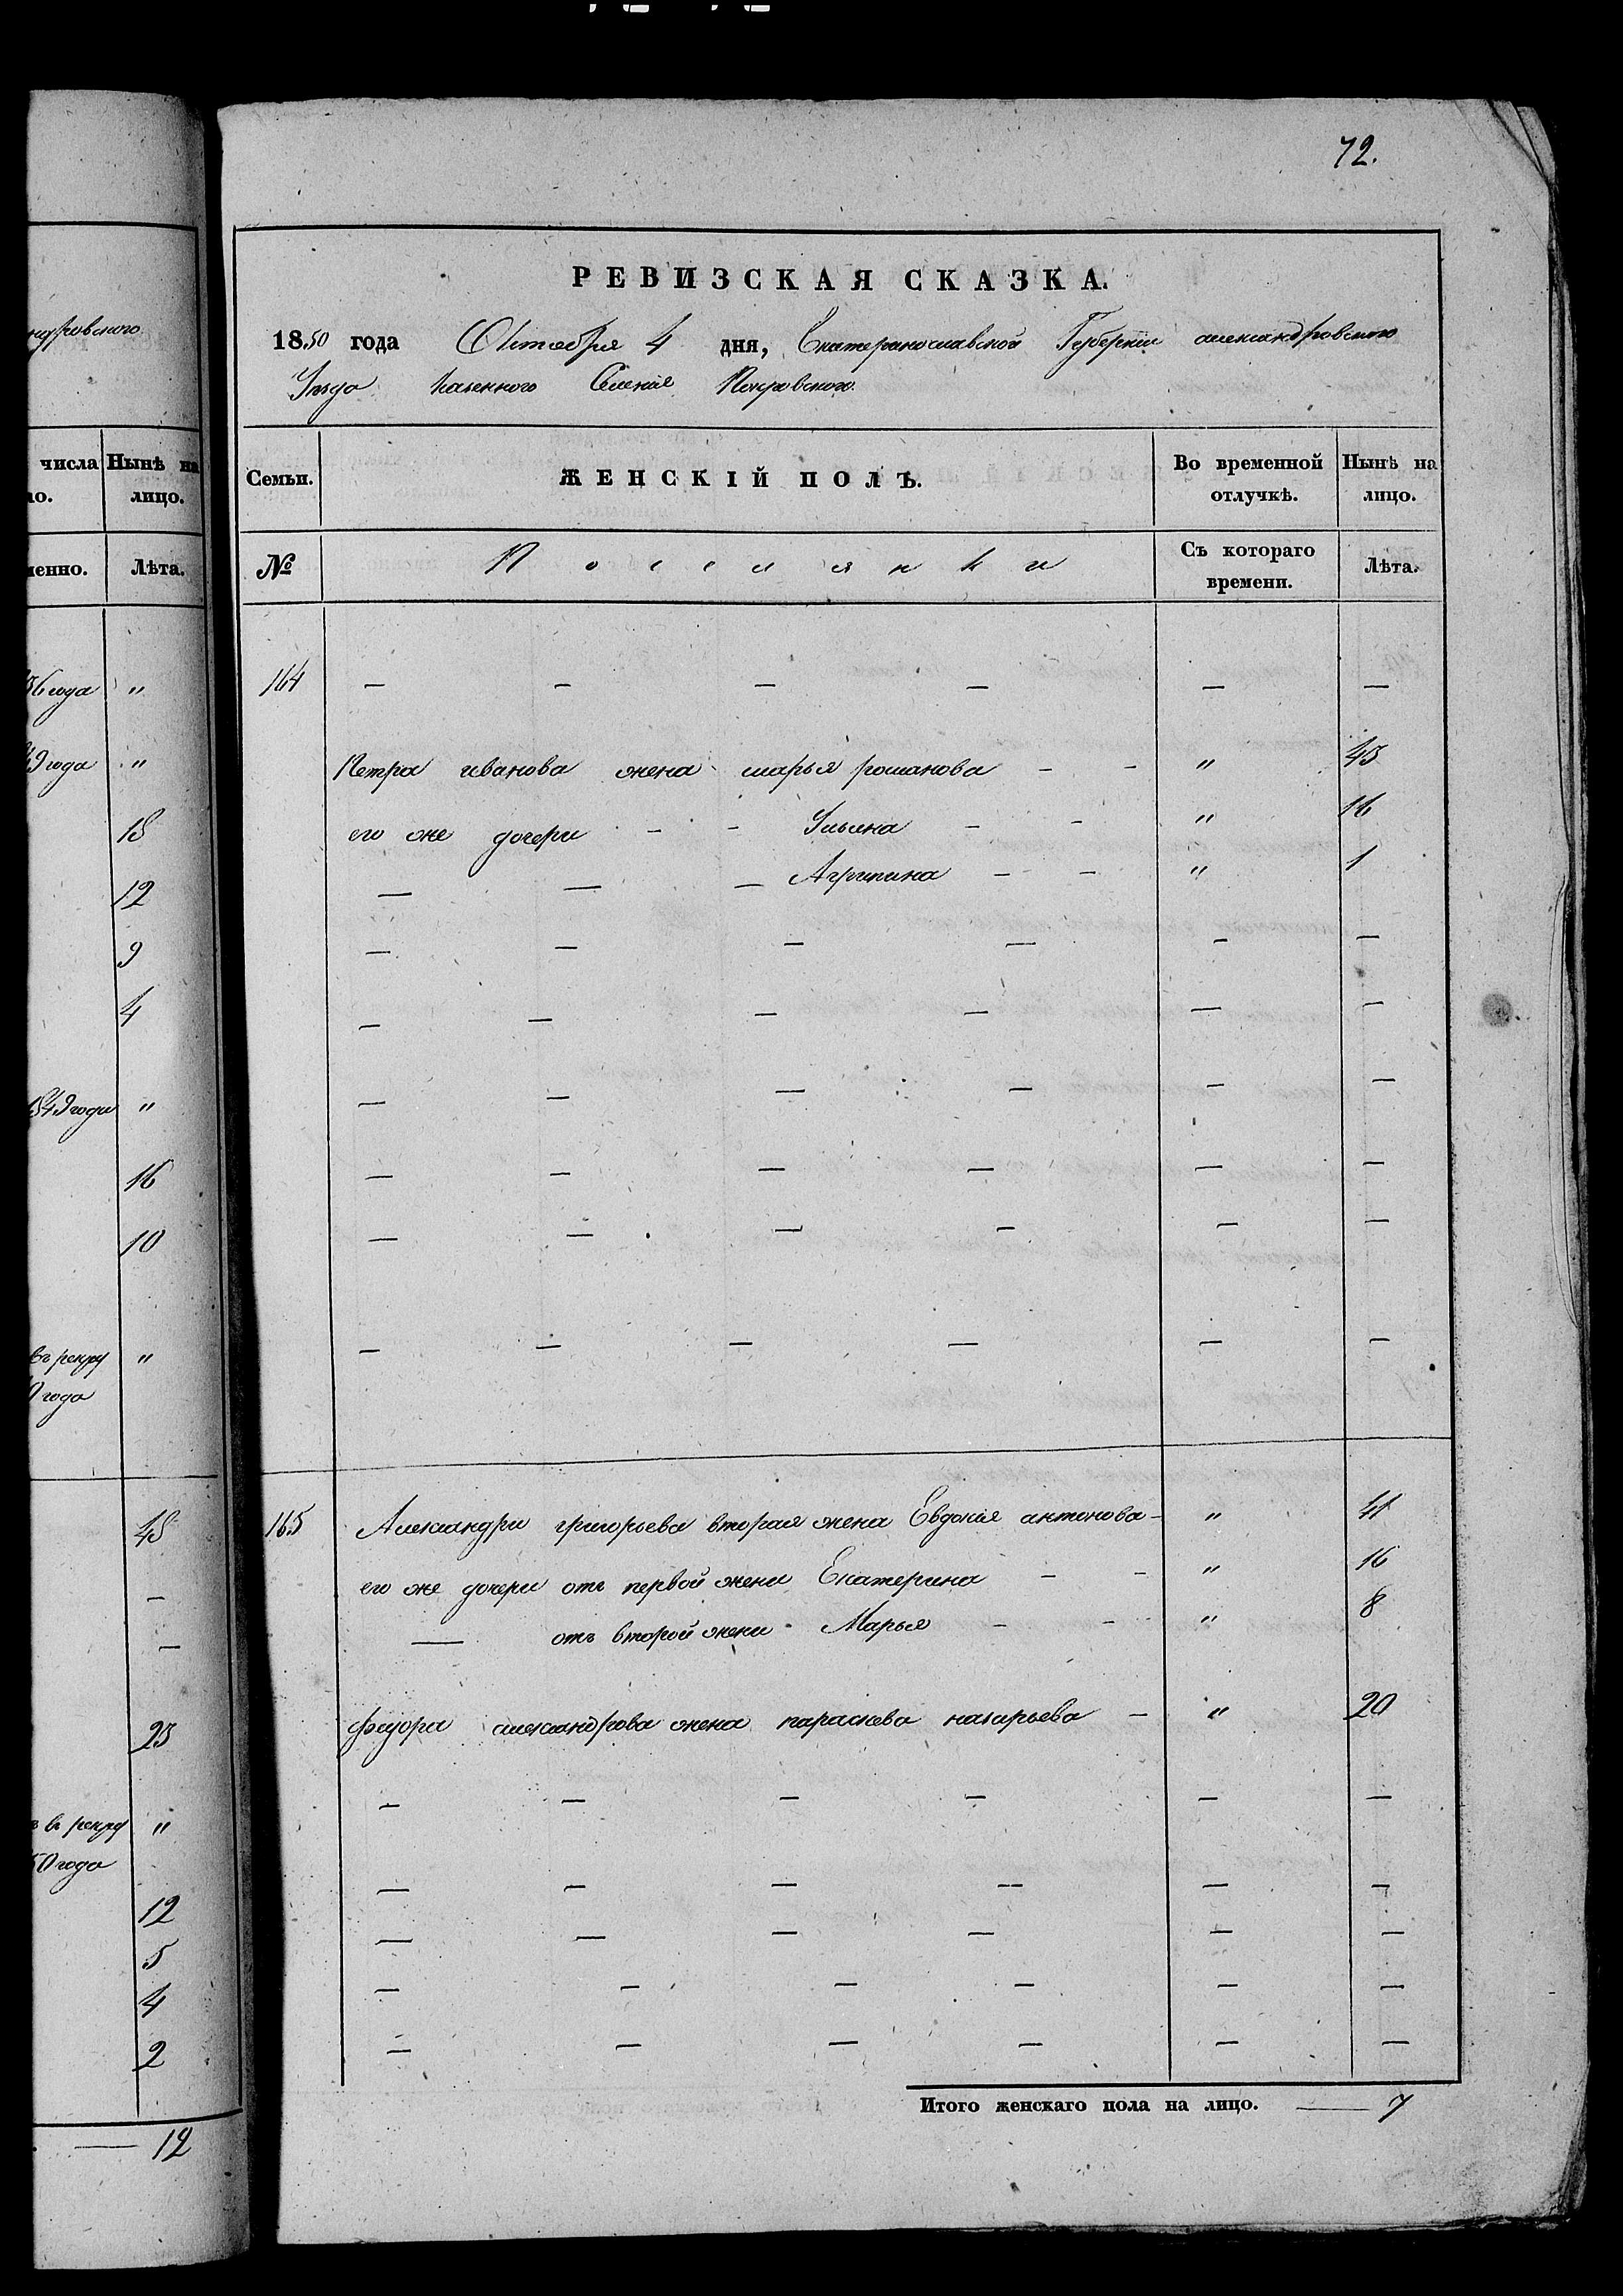 72.
РЕВИЗСКАЯ СКАЗКА.
1850 года Октября 4 дня, Екатеринославской Губерніи александровского
Уезда Казенного Селенія Покровского.
числа Нынѣ на
лицо.
Лѣта.
36 года "
49 года "
18
12
9
4
1849 года "
16
10
въ рекру "
0 года
48
—
—
23
въ рекру "
50 года
12
5
4
2
— 12
Семьи. ЖЕНСКІЙ ПОЛЪ. Во временной отлучкѣ. Нынѣ на лицо.
№ Поселянки Съ котораго времени. Лѣта.
164 — — — — — —
Петра иванова жена марья романова - - " 45
его же дочери - - Ульяна - - " 16
— — — Агрипина - - " 1
— — — — — —
— — — — — —
— — — — — —
— — — — — —
— — — — — —
— — — — — —
165 Александра григорьева вторая жена Евдокія антонова - " 41
его же дочери отъ первой жены Екатерина - - " 16
— отъ второй жены Марья - - " 8
федора александрова жена параскева назарьева - " 20
— — — — — —
— — — — — —
— — — — — —
— — — — — —
— — — — — —
Итого женскаго пола на лицо. — 7